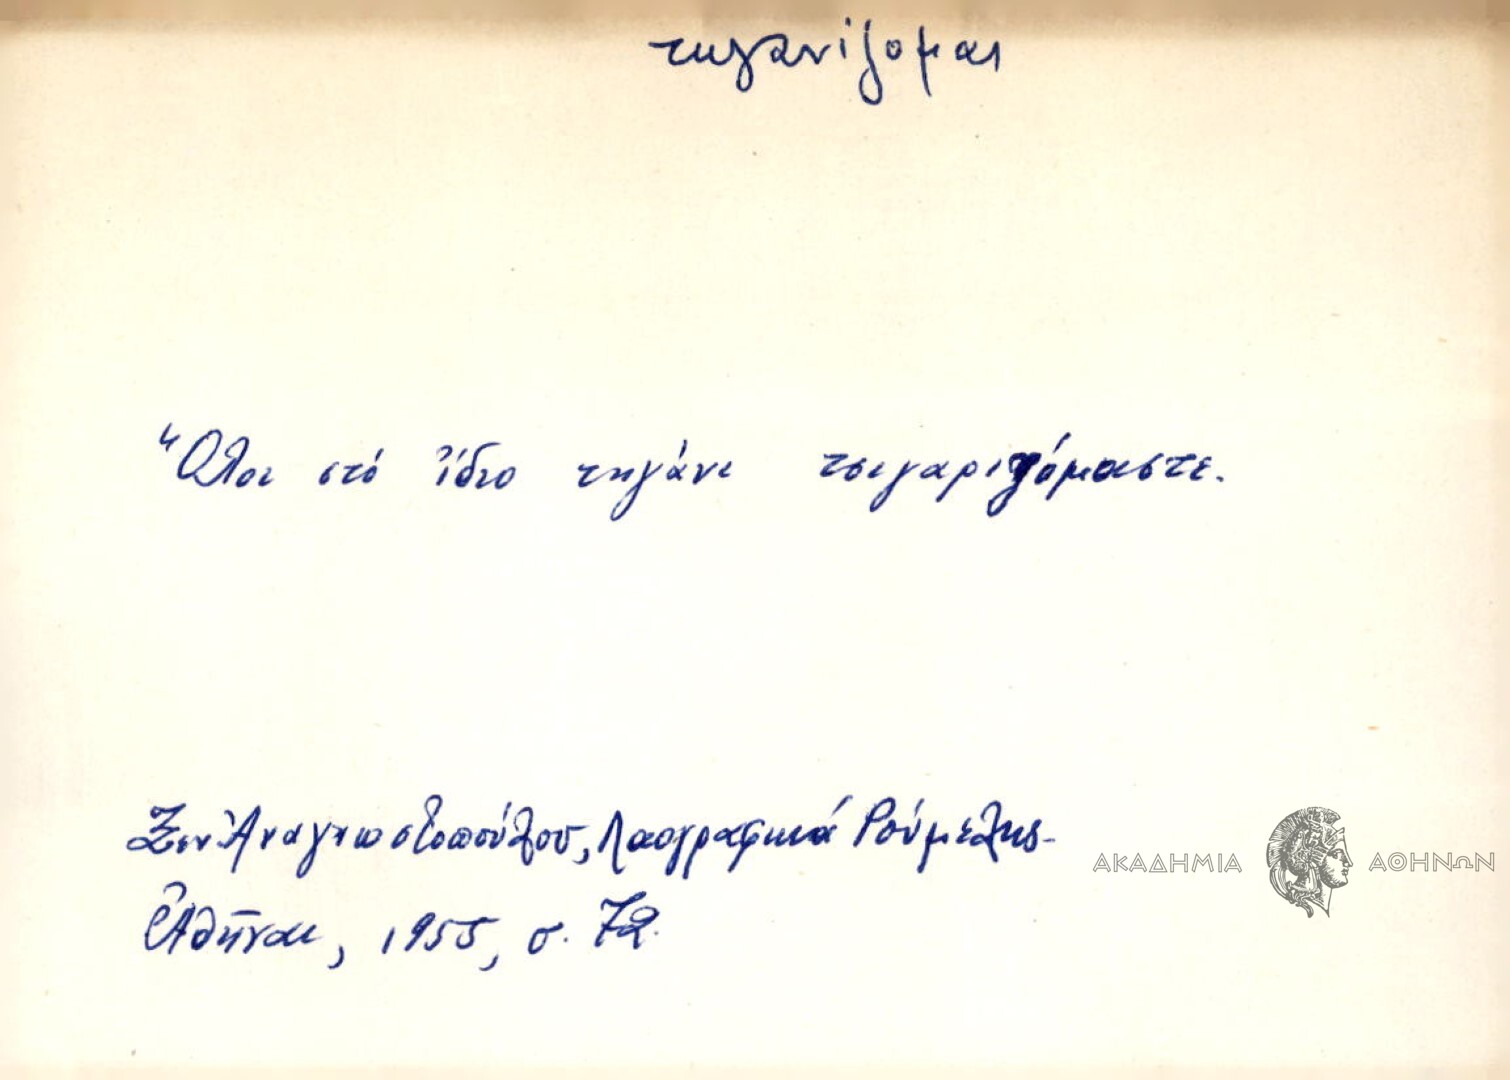 τηγανίζομαι
Ὅλοι στό ἴδιο τηγάνι τσιγαριζόμαστε.
Ξεν Ἀναγνωστοπούλου, Λαογραφικά Ρούμελης-
Ἀθῆναι, 1955, σ. 72.
ΑΚΑΔΗΜΙΑ ΑΘΗΝΩΝ